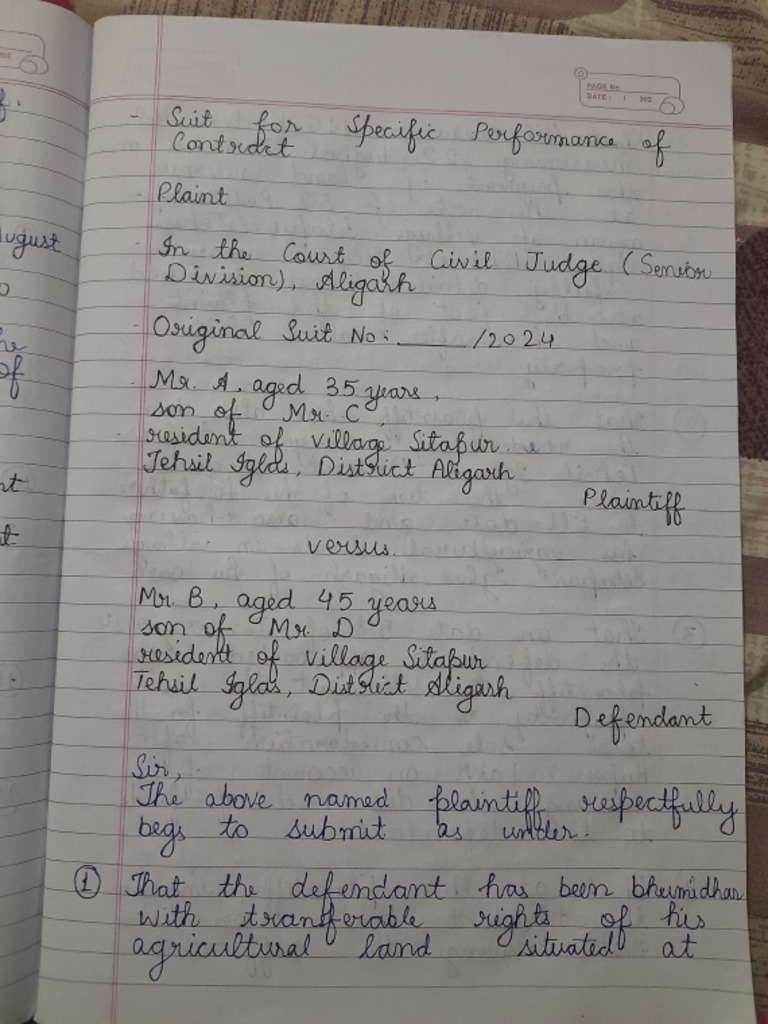 PAGE No.
DATE: / / 202
- Suit for Specific Performance of
Contract
- Plaint
- In the Court of Civil Judge (Senior
Division), Aligarh
- Original Suit No:.______/2024
- Mr. A, aged 35 years,
son of Mr. C,
resident of village Sitapur
Tehsil Iglas, District Aligarh
Plaintiff
versus.
Mr. B, aged 45 years
son of Mr. D
resident of village Sitapur
Tehsil Iglas, District Aligarh
Defendant
Sir,
The above named plaintiff respectfully
begs to submit as under.
① That the defendant has been bhumidhar
with transferable rights of his
agricultural land situated at